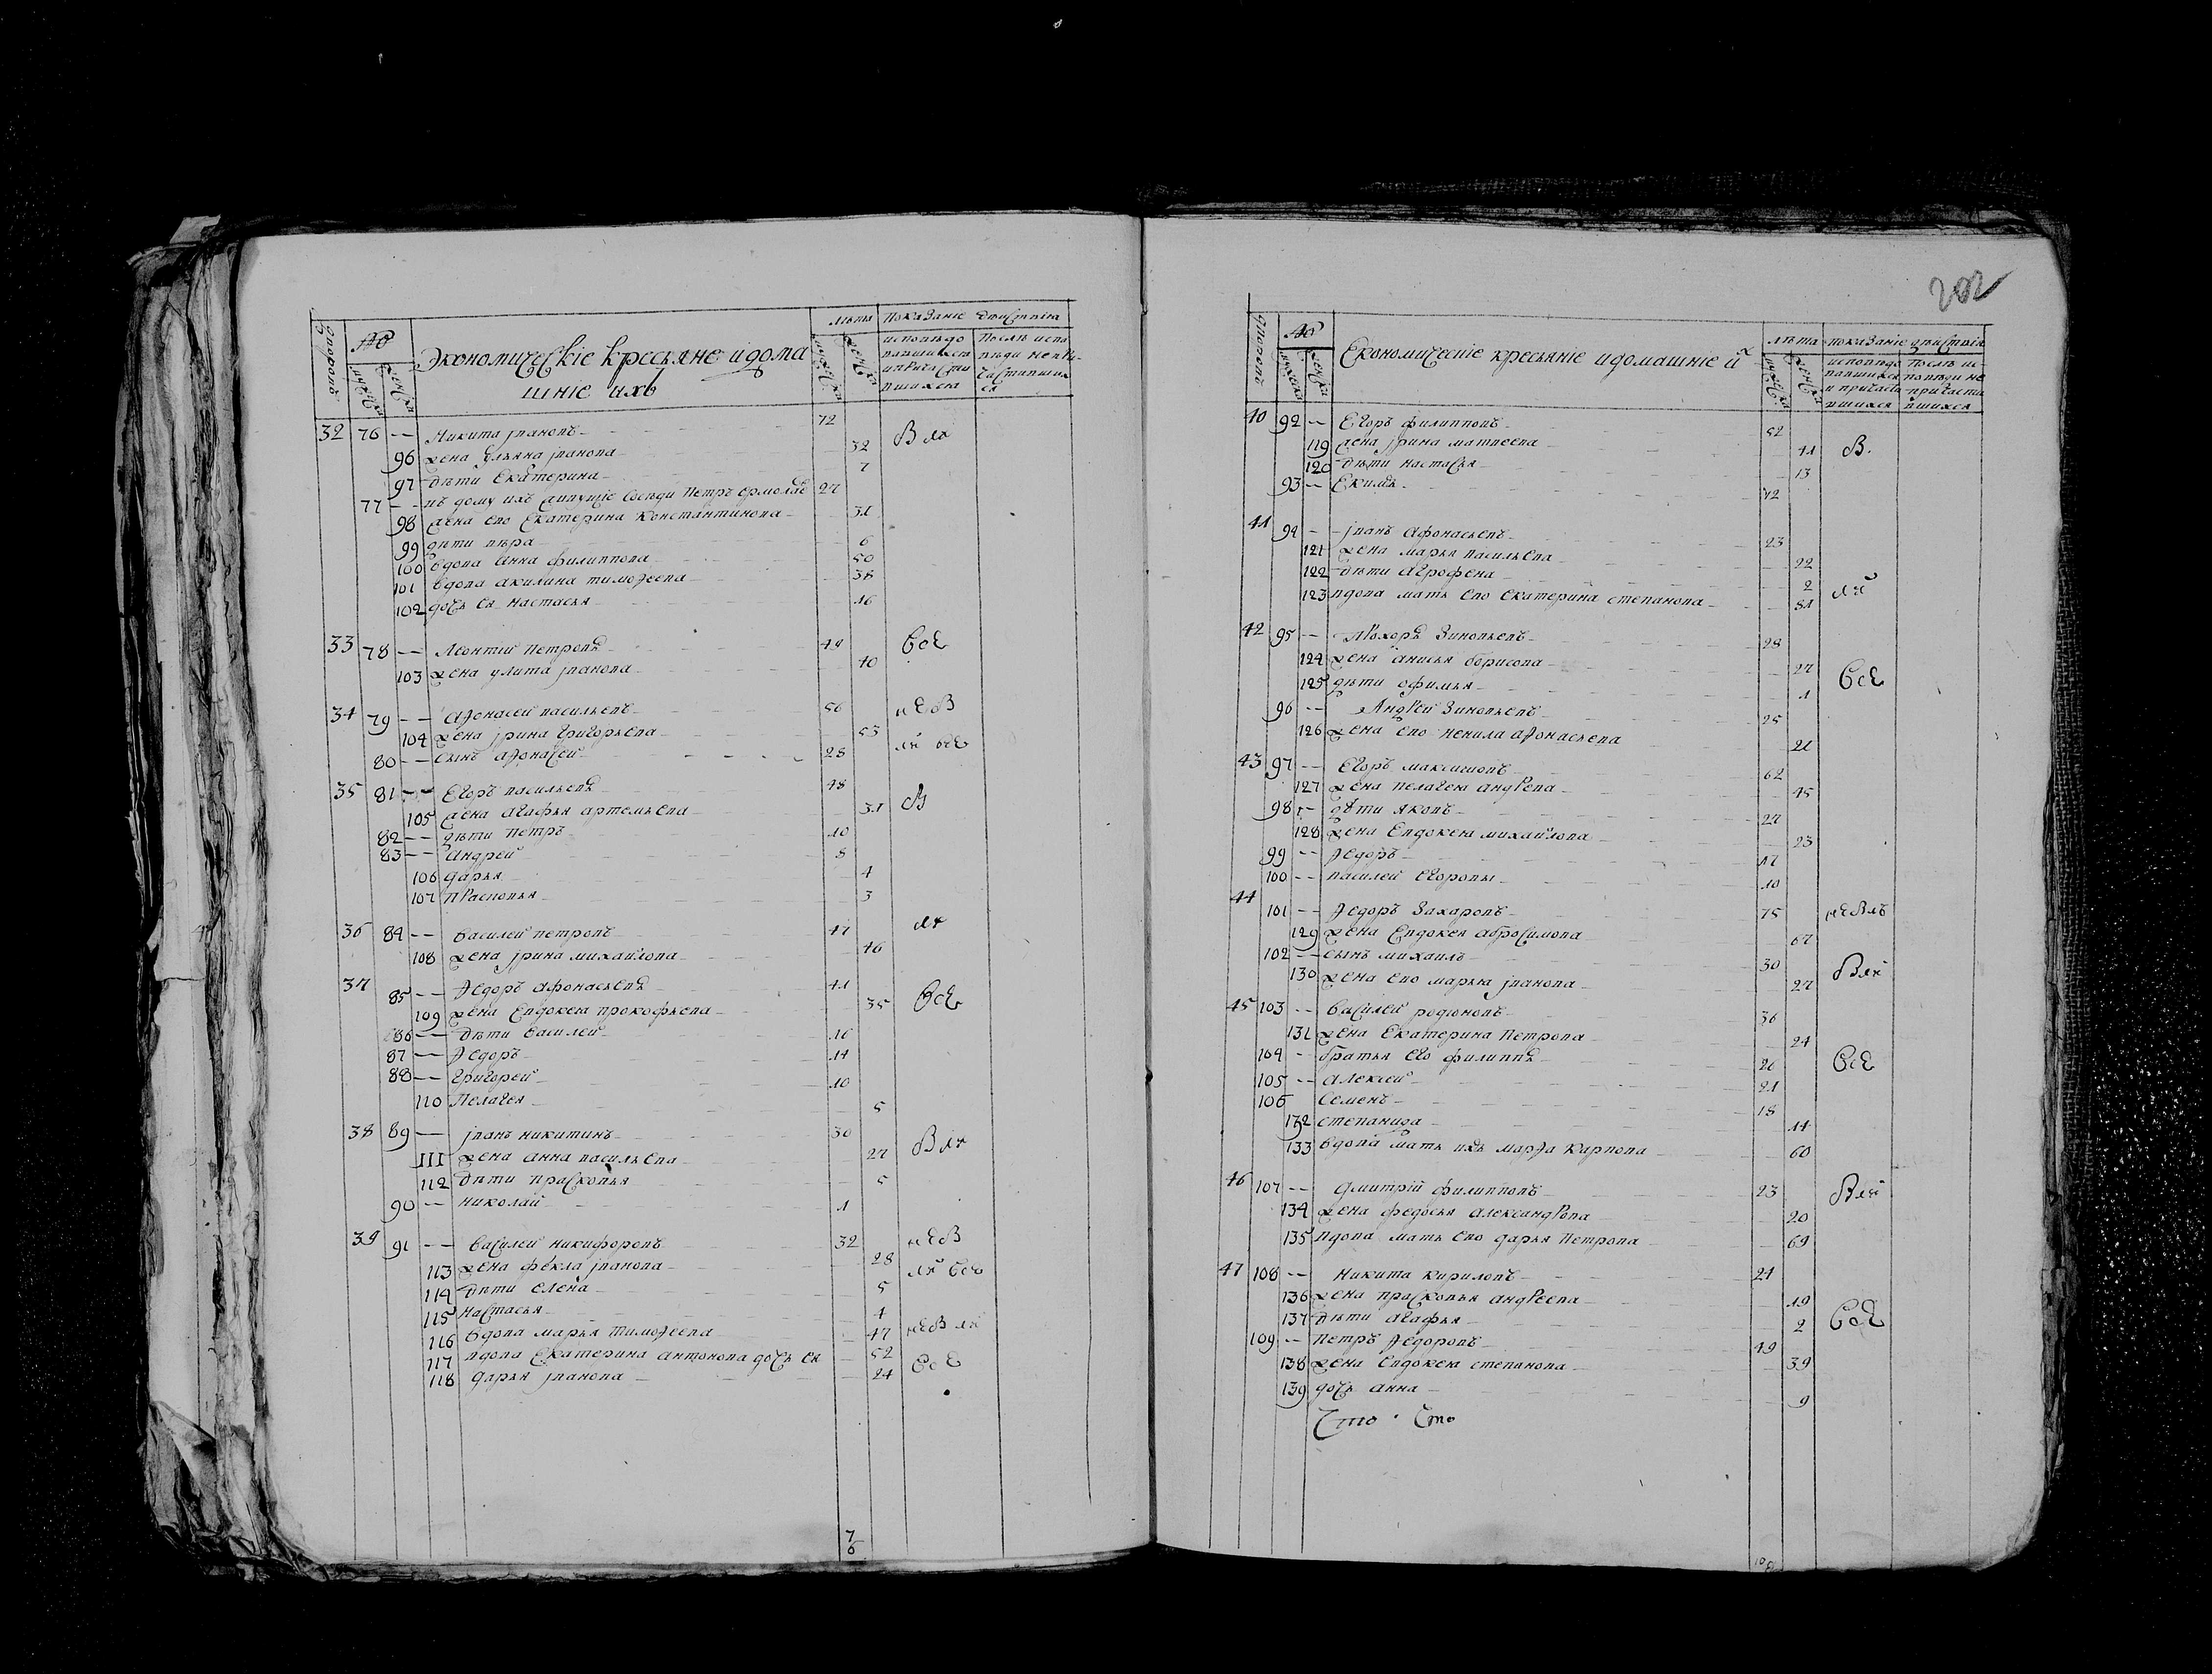 №
лѣта показаніе дѣйствіа
Экономическіе кресьяне идома
шніе ихъ
32 76 -- Никита івановъ 72
96 жена ульяна іванова 32
97 дѣти Екатерина 7
77 -- въ дому ихъ живущіе соседи Петръ ермолае 27
98 жена его Екатерина Константинова 31
99 дѣти вѣра 6
100 вдова анна филиппова 50
101 вдова акилина тимоѳеева 38
102 дочь ея настасья 16
33 78 -- Леонтий петровъ 49 все
103 жена улита іванова 40
34 79 -- аѳонасей васильевъ 56
104 жена ірина григорьева 53
80 -- сынъ аѳонасей 28
35 81 -- Егоръ васильевъ 48 в
105 жена агафья артемьева 31
82 -- дѣти петръ 10
83 -- андрей 8
106 дарья 4
107 Прасковья 3
36 84 -- василей петровъ 47
108 жена ірина михайлова 46
37 85 -- Ѳедоръ афонасьевъ 41 все
109 жена Евдокея прокофьева 35
86 -- дѣти василей 16
87 -- Ѳедоръ 14
88 -- григорей 10
110 Пелагея 5
38 89 -- іванъ никитинъ 30
111 жена анна васильева 27
112 дѣти прасковья 5
90 -- николай 1
39 91 -- василей никифоровъ 32
113 жена фекла іванова 28
114 дѣти елена 5
115 настасья 4
116 вдова марья тимоѳеева 47
117 вдова Екатерина антонова дочь ея 52 все
118 дарья іванова 24
202
№
лѣта показаніе дѣйствія
Економическіе кресьяніе идомашніе и
40 92 -- Егоръ филипповъ 52
119 жена ірина матвеева 41 в.
120 дѣти настасья 13
93 -- Екимъ 12
41 94 -- іванъ афонасьевъ 23
121 жена марья васильева 22
122 дѣти агрофена 2
123 вдова мать ево екатерина степанова 51
42 95 -- Прохоръ Зиновьевъ 28
124 жена анисья борисова 27
125 дѣти офимья 1 все
96 -- Андрей Зиновьевъ 25
126 жена ево ненила аѳонасьева 21
43 97 -- Егоръ максимовъ 62
127 жена пелагея андреева 45
98 -- дѣти яковъ 27
128 жена Евдокея михайлова 23
99 -- Ѳедоръ 17
100 -- василей егоровы 10
44 101 -- Ѳедоръ Захаровъ 75
129 жена Евдокея абросимова 67
102 -- сынъ михаилъ 30
130 жена ево марья іванова 27
45 103 -- василей родіоновъ 36
131 жена Екатерина Петрова 24
104 - братья его филиппъ 26 все
105 -- алексей 21
106 семенъ 18
132 степанида 11
133 вдова мать ихъ марѳа карпова 60
46 107 -- дмитрій филипповъ 23
134 жена федосья александрова 20
135 вдова мать ево дарья петрова 69
47 108 -- никита кириловъ 21
136 жена прасковья андреева 19
137 дѣти агафья 2 все
109 -- петръ Ѳедоровъ 49
138 жена евдокея степанова 39
139 дочь анна 9